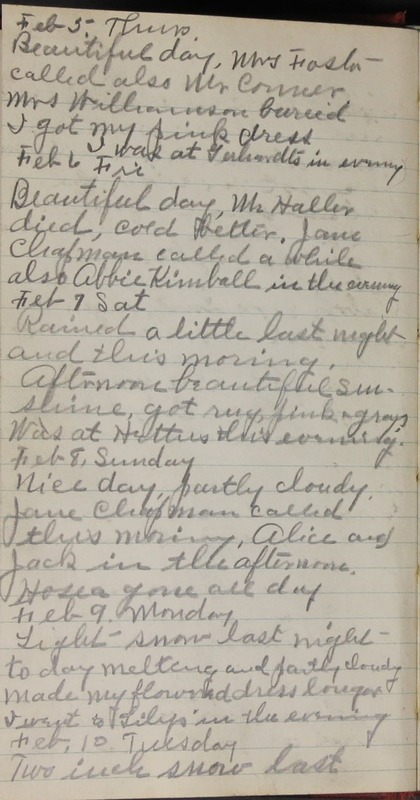 Feb 5, Thurs.
Beautiful day, Mrs Foster
called also Mr Conner
Mrs Williamson buried
I got my pink dress
I was at Gerhardts in evening
Feb 6 Fri
Beautiful day, Mr Haller
died, cold better. Jane
Chapman called a while
also Abbie Kimball in the evening
Feb 7 Sat
Rained a little last night
and this moring.
Afternoon beautiful sun-
shine, got rug, pink & gray
Was at Hattus this evening.
Feb 8, Sunday
Nice day, partly cloudy.
Jane Chapman called
this moring, Alice and
Jack in the afternoon.
Hosea gone all day
Feb 9. Monday
Light snow last night
to day melteng and partly cloudy
made my flowered dress longer
I went to Lilys in the evening
Feb, 10 Tuesday
Two inch snow last